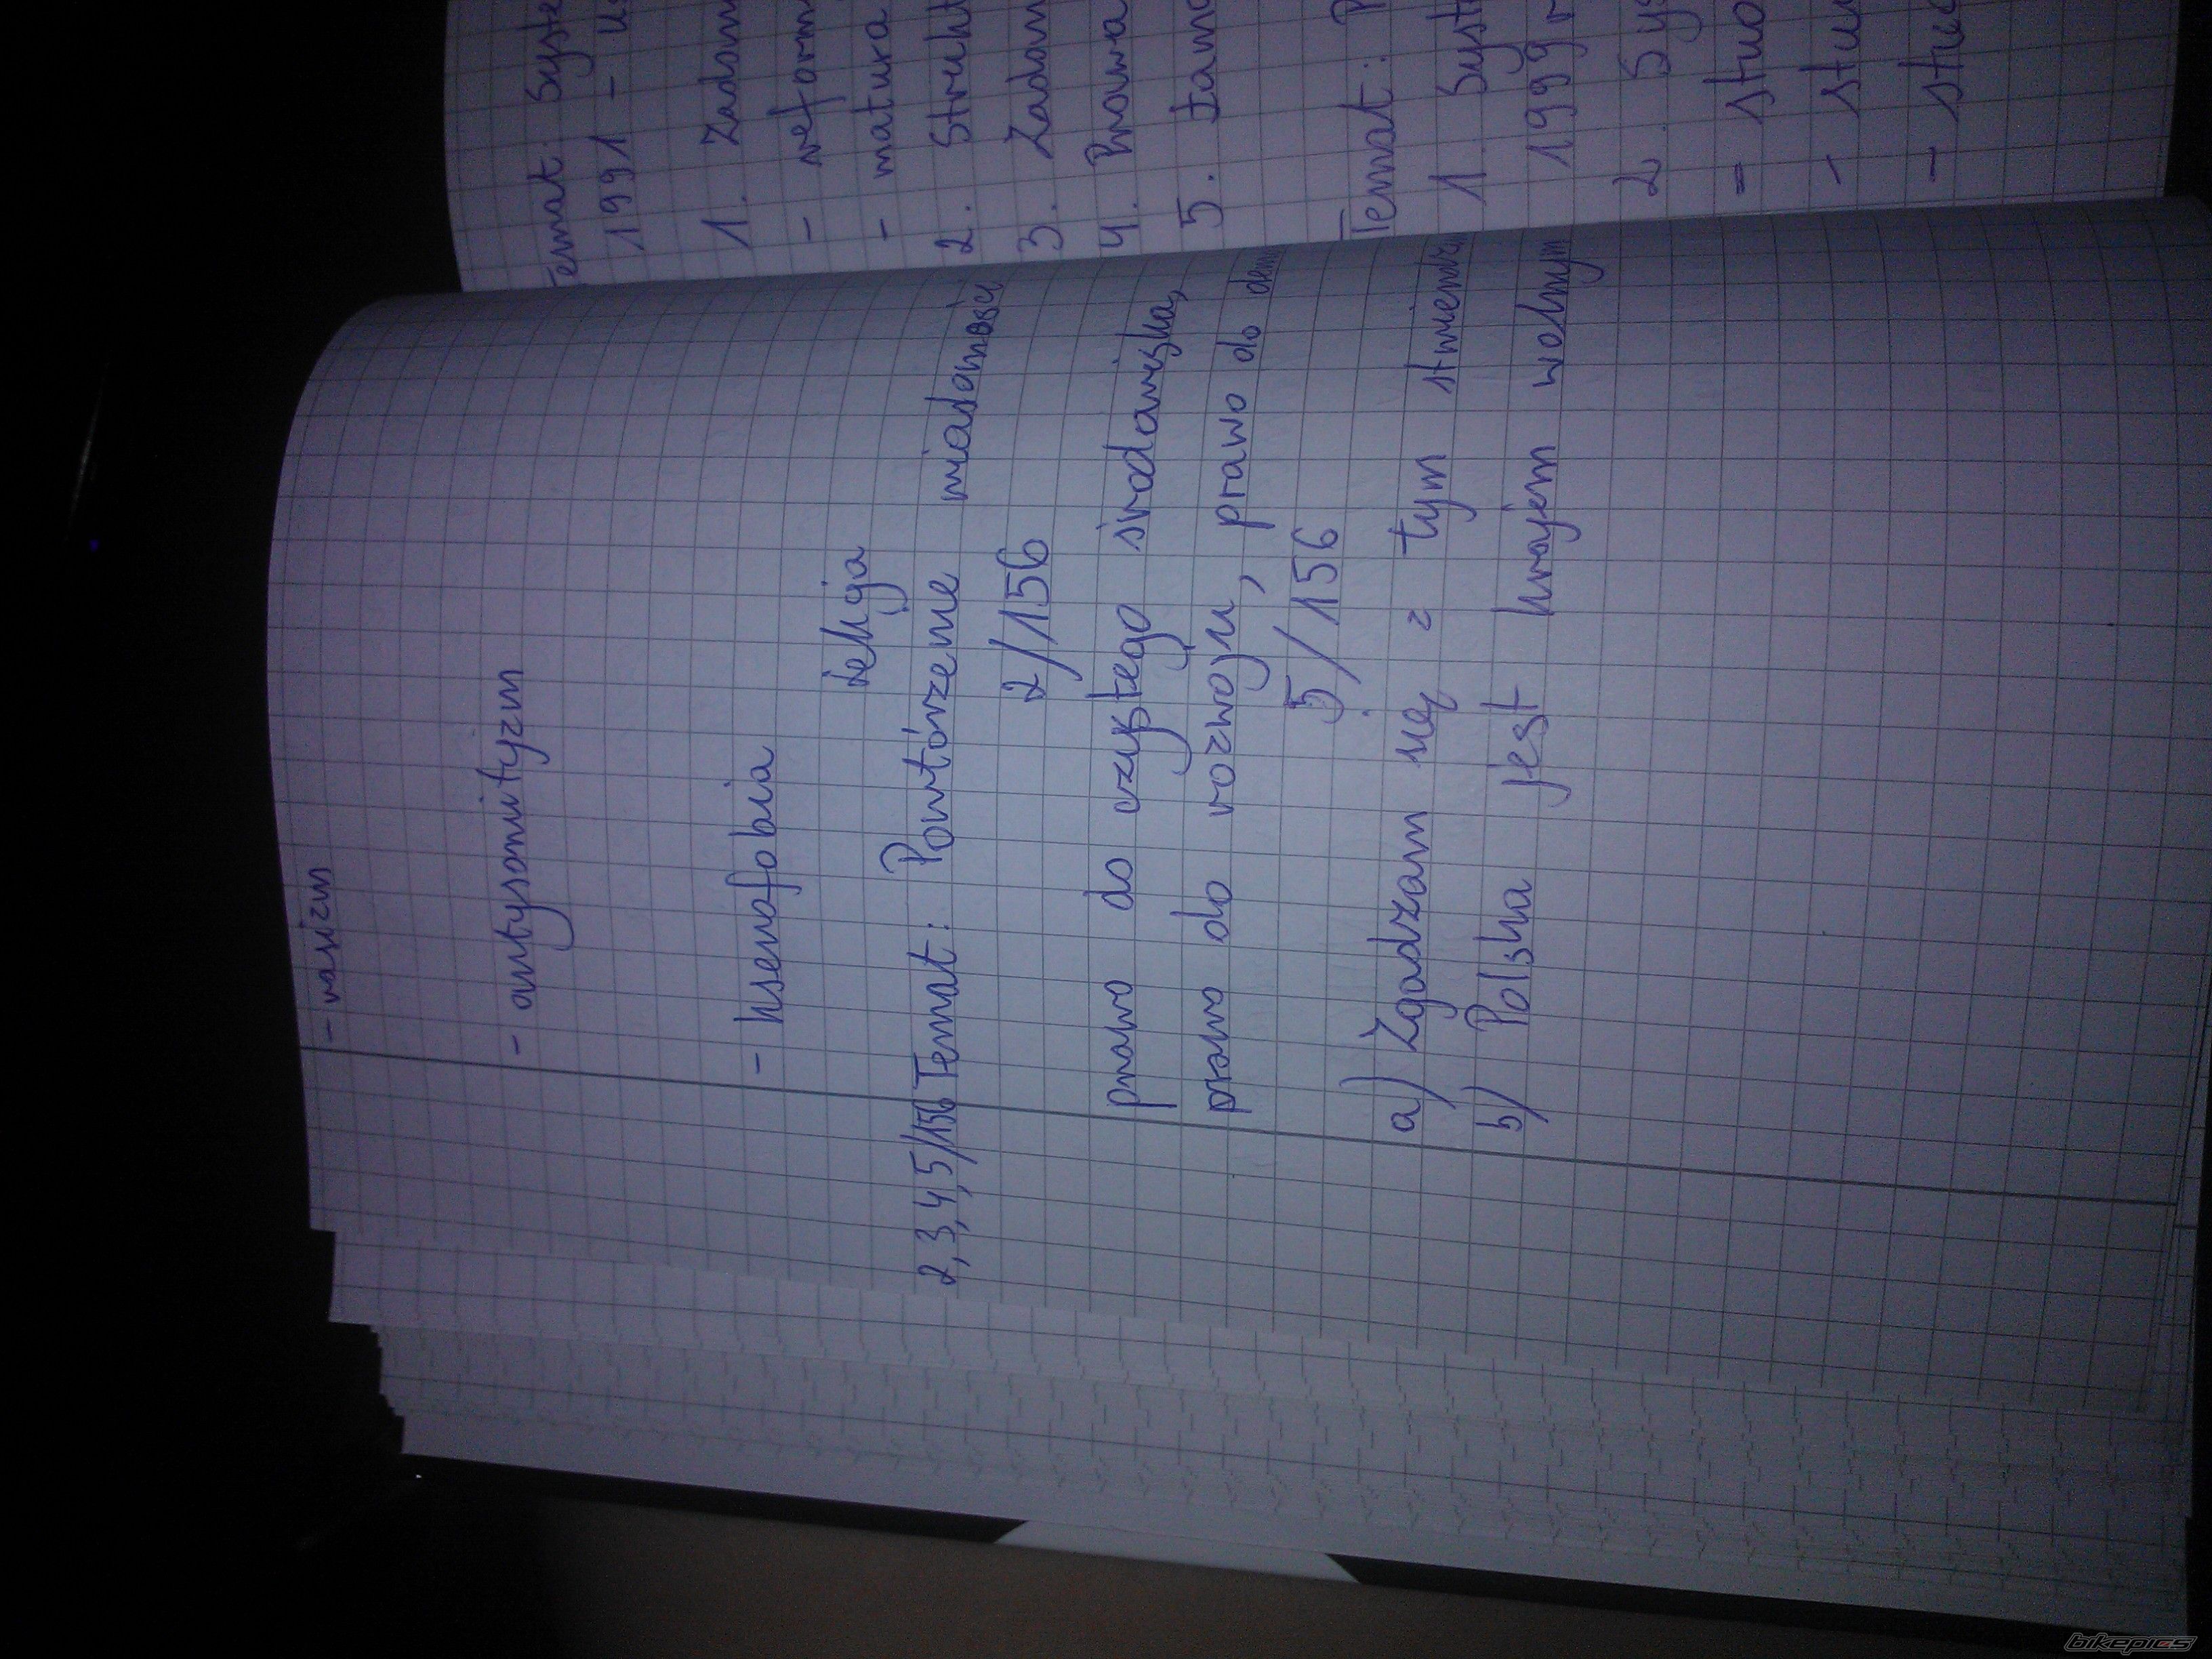 - rasizm
- antysomityzm
- ksenofobia
Lekcja
2,3,4,5/156 Temat: Powtórzenie wiadomości
2/156
prawo do czystego środowiska,
prawo do rozwoju, prawo do
5/156
a) Zgadzam się z tym
b) Polska jest krajem wolnym
Temat: Syste
1991 -
1. Zadom
- reform
- matura
2. Strukt
3. Zadom
4. Prawa
5. Łama
Temat: P
1. Syst
1999 r
2. Sys
- stuo
- stu
- stuc
bikepics